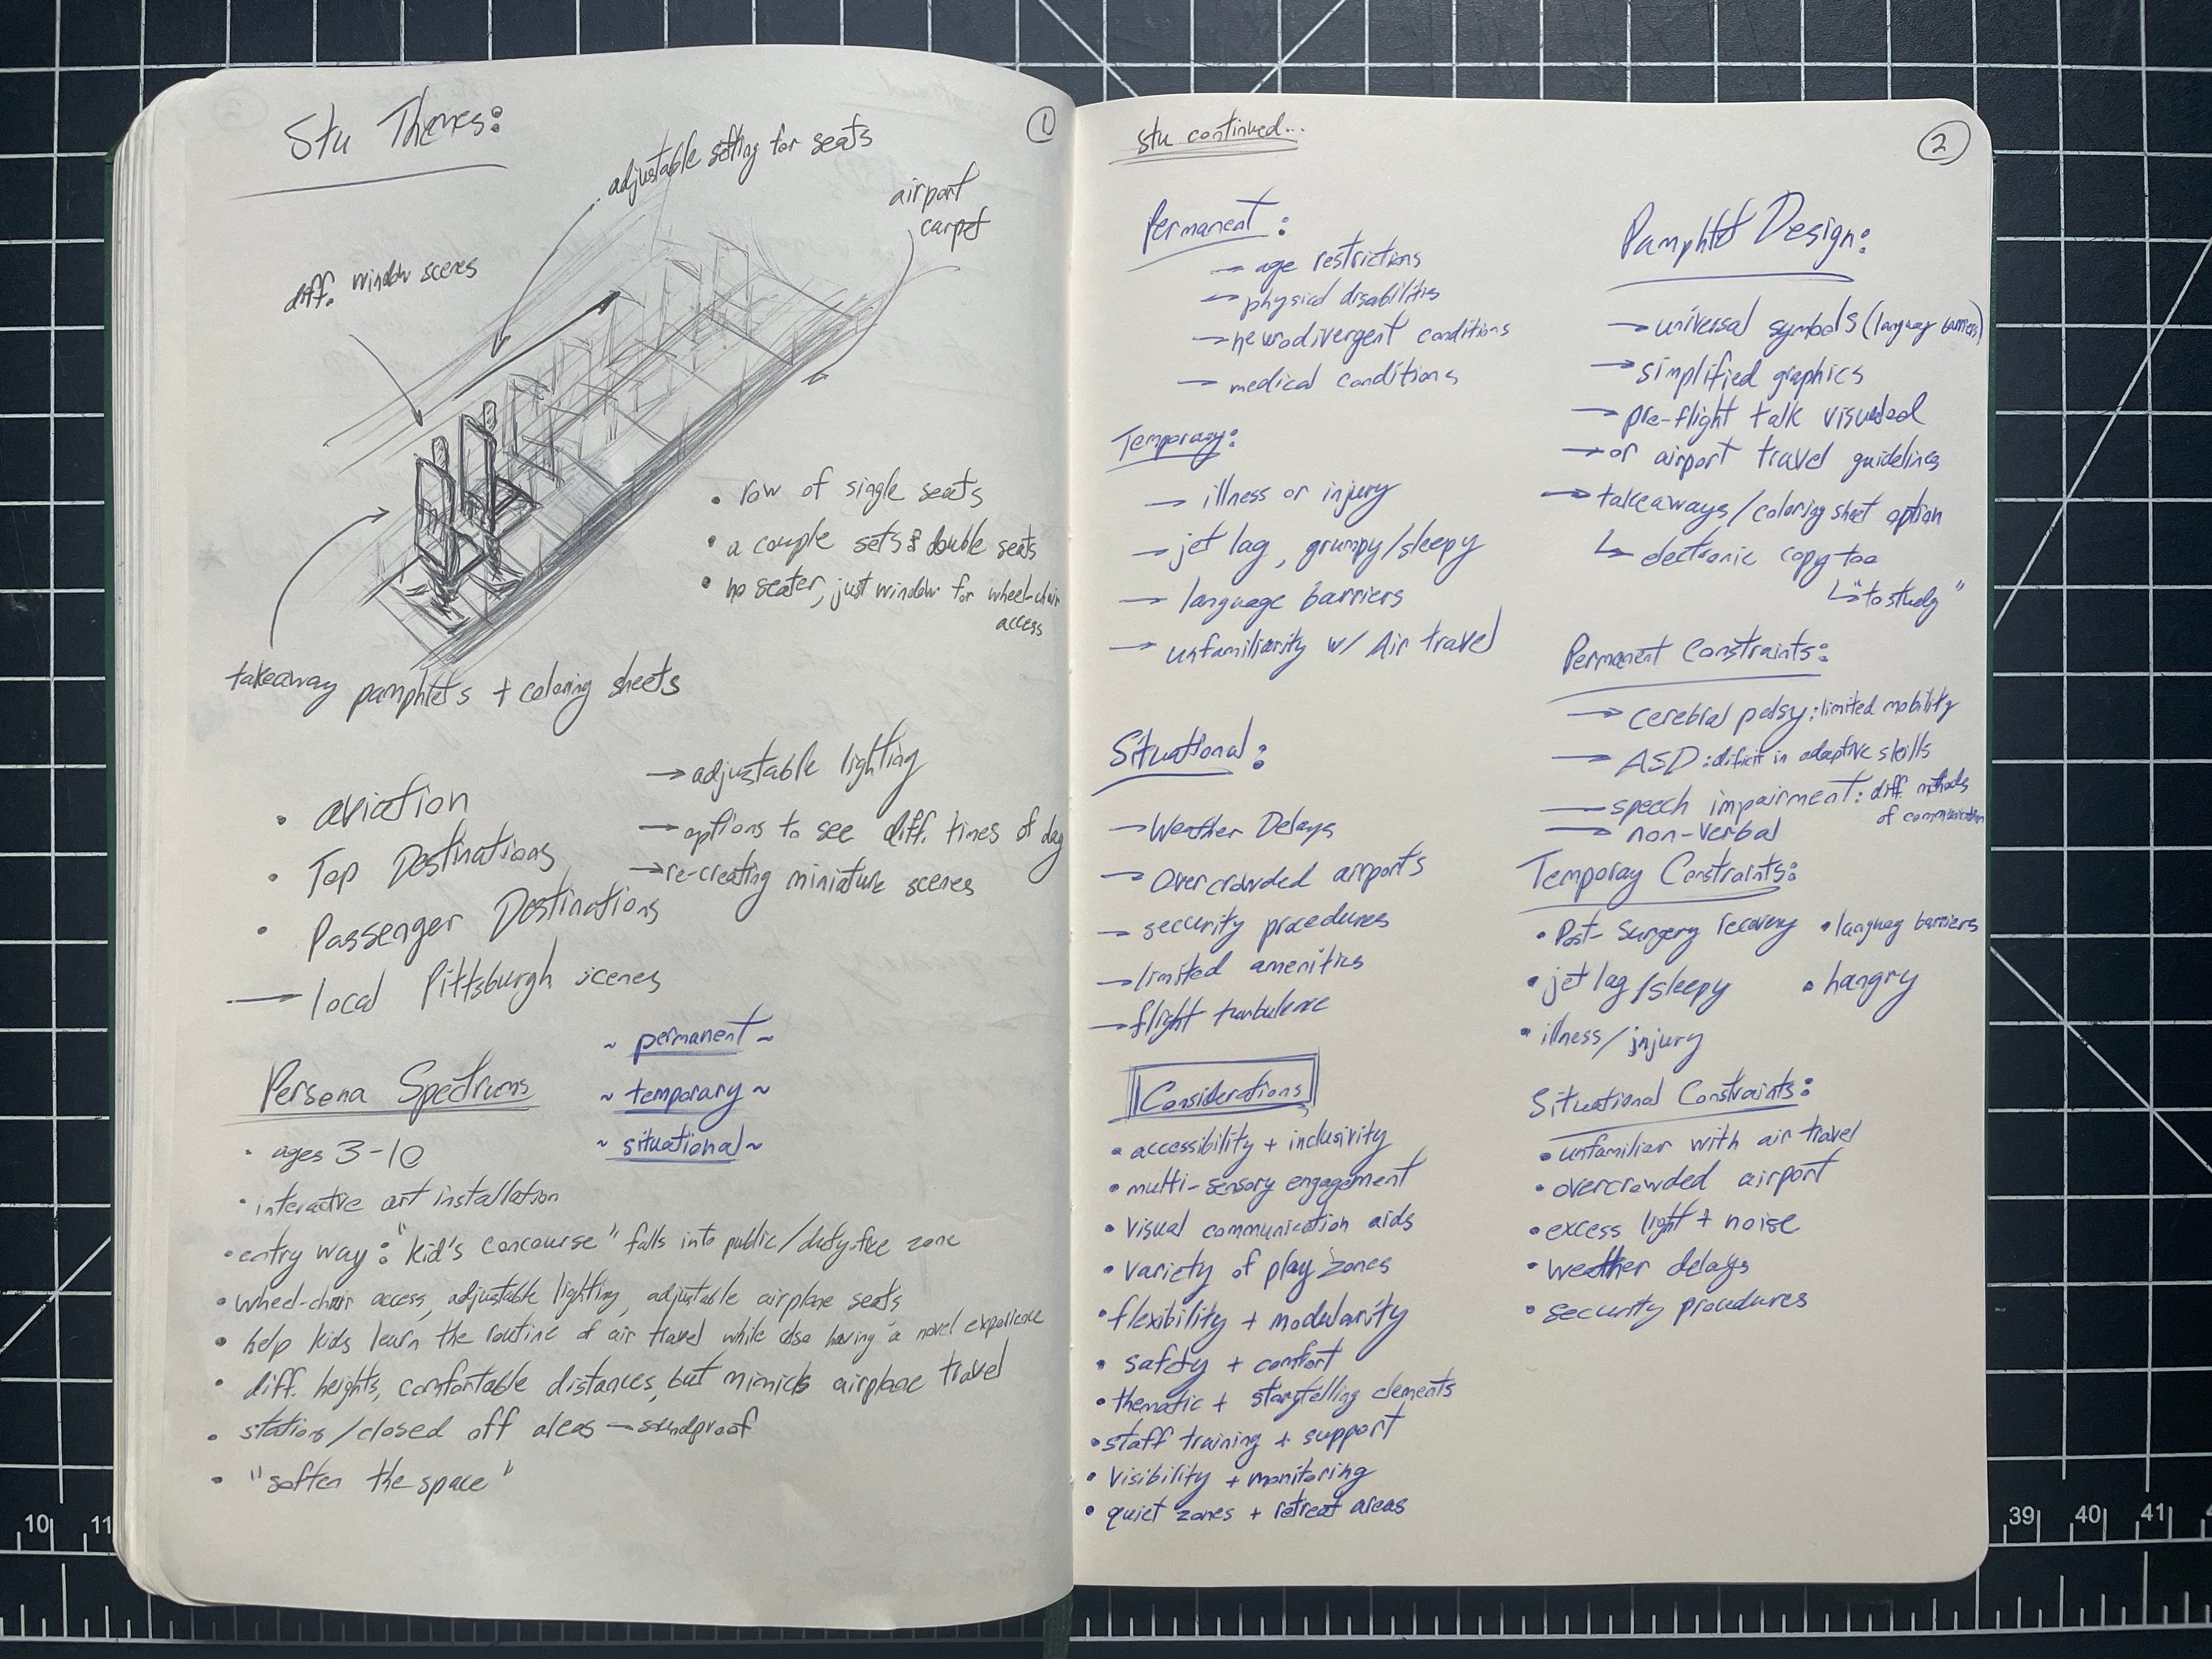 Stu Themes:
1
adjustable setting for seats
airport
carpet
diff. window scenes
• row of single seats
• a couple sets of double seats
• no seater, just window for wheel-chair
access
takeaway pamphlets + coloring sheets
→ adjustable lighting
• aviation
→ options to see diff. times of day
• Top Destinations
→ re-creating miniature scenes
• Passenger Destinations
→ local Pittsburgh scenes
~ permanent ~
Persona Spectrums
~ temporary ~
~ situational ~
• ages 3-10
• interactive art installation
• entry way: "kid's concourse" falls into public/duty-free zone
• wheel-chair access, adjustable lighting, adjustable airplane seats
• help kids learn the routine of air travel while also having a novel experience
• diff. heights, comfortable distances, but mimicks airplane travel
• stations/closed off areas — soundproof
• "soften the space"
stu continued...
2
Permanent:
→ age restrictions
→ physical disabilities
→ neurodivergent conditions
→ medical conditions
Temporary:
→ illness or injury
→ jet lag, grumpy/sleepy
→ language barriers
→ unfamiliarity w/ Air travel
Situational:
→ Weather Delays
→ Overcrowded airports
→ security procedures
→ limited amenities
→ flight turbulence
Considerations
• accessibility + inclusivity
• multi-sensory engagement
• visual communication aids
• variety of play zones
• flexibility + modularity
• safety + comfort
• thematic + storytelling elements
• staff training + support
• visibility + monitoring
• quiet zones + retreat areas
Pamphlet Design:
→ universal symbols (languag barriers)
→ simplified graphics
→ pre-flight talk
→ or airport travel guidelines
→ takeaways/coloring sheet option
↳ electronic copy too
↳ "to study"
Permanent Constraints:
→ cerebral palsy: limited mobility
→ ASD: dificit in adaptive skills
→ speech impairment: diff. methods
of communication
→ non-verbal
Temporay Constraints:
• Post-Surgery recovery • languag barriers
• jet lag/sleepy • hangry
• illness/injury
Situational Constraints:
• unfamiliar with air travel
• overcrowded airport
• excess light + noise
• weather delays
• security procedures
10 11
39 40 41